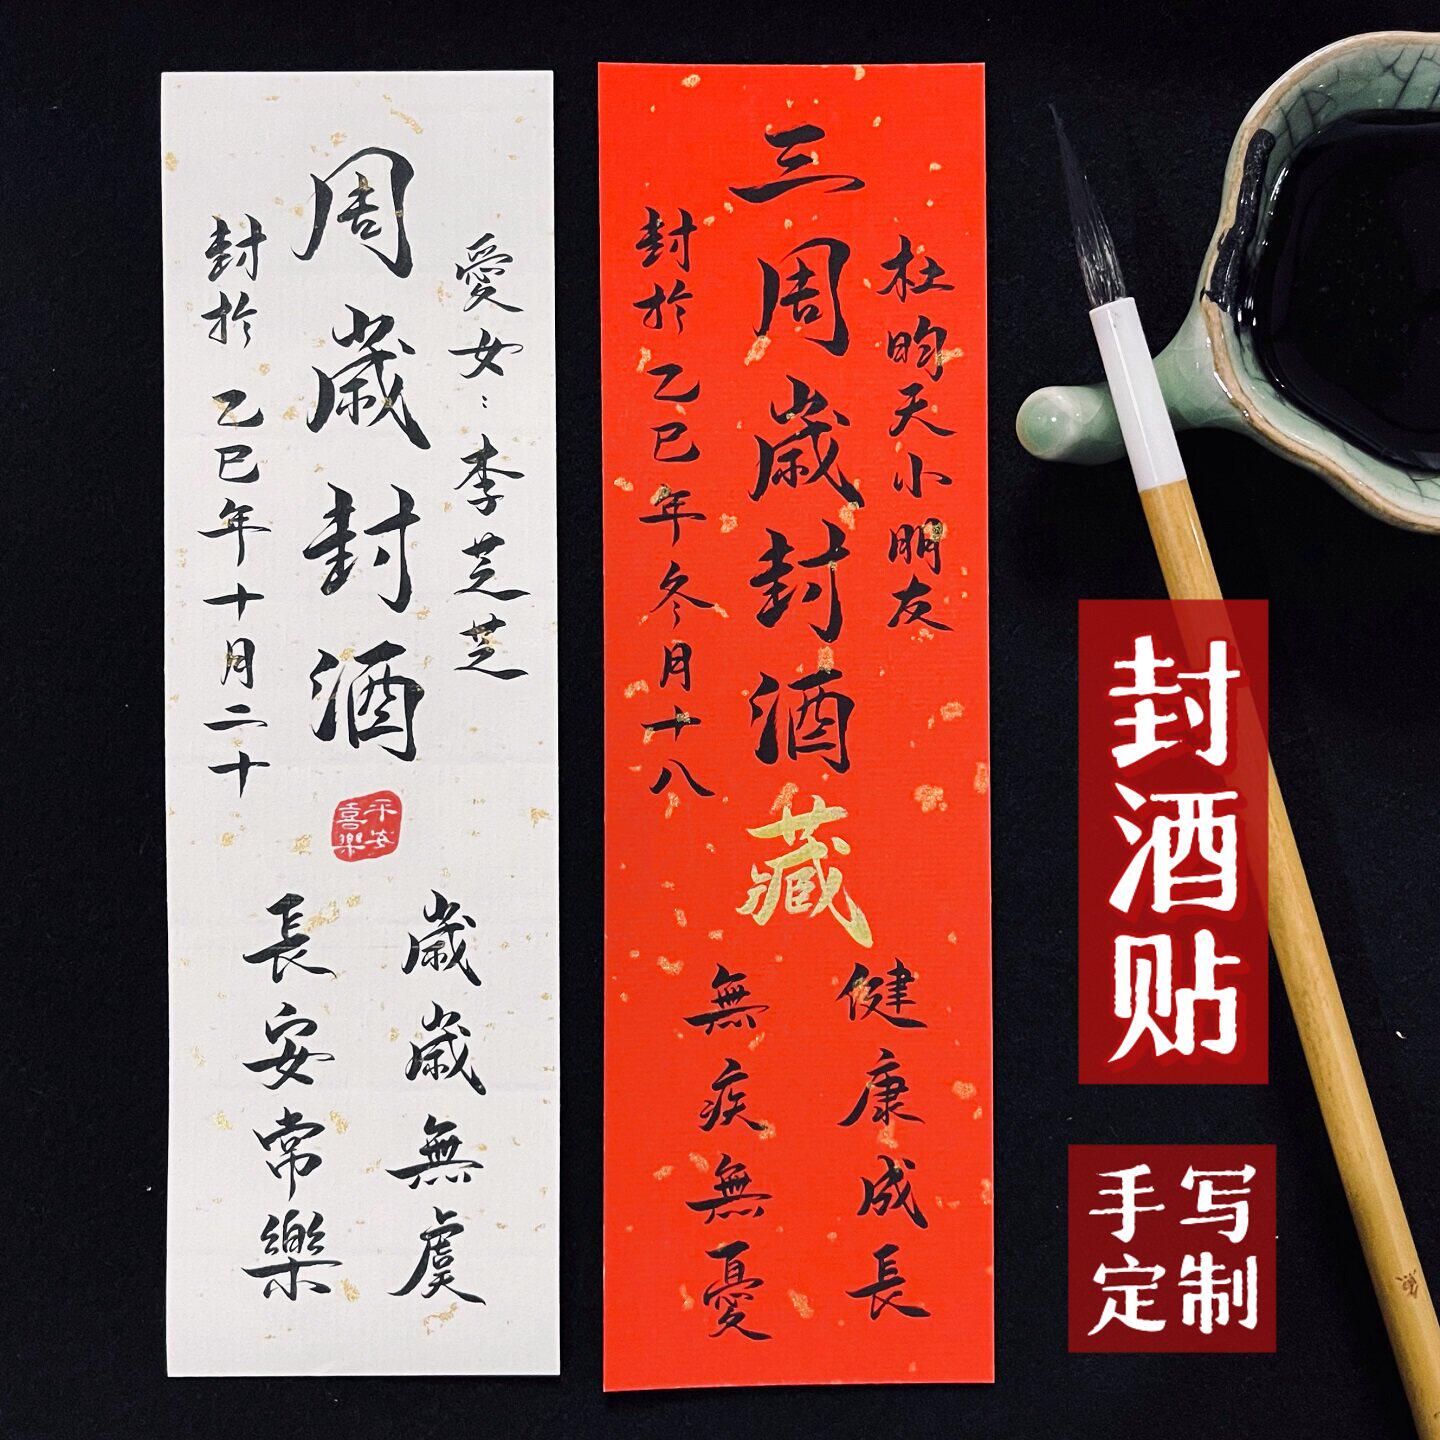 愛女：李芝芝
周歲封酒
封於乙巳年十月二十
平安
喜樂
歲歲無虞
長安常樂
杜昀天小朋友
三周歲封酒藏
封於乙巳年冬月十八
健康成長
無疾無憂
封酒贴
手写
定制